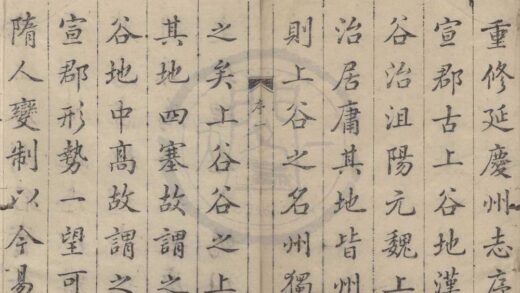 重修延慶州志序
宣郡古上谷地漢
谷治沮陽元魏上
治居庸其地皆州
則上谷之名州獨
序一
之矣上谷谷之上
其地四塞故謂之
谷地中高故謂之
宣郡形勢一望可
隋人變制以今易